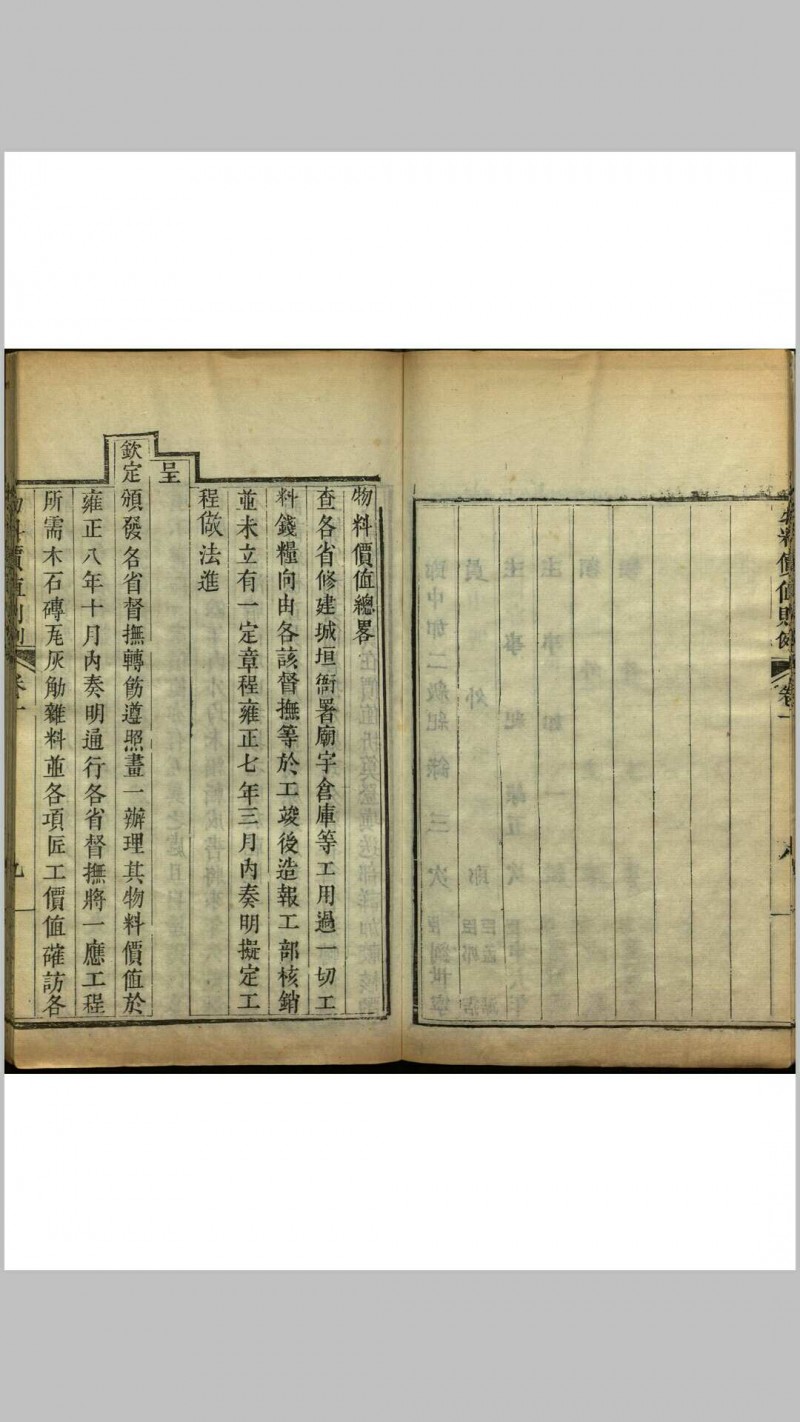 物料價值則例 卷一 八
物料價值總畧
查各省修建城垣衙署廟宇倉庫等工用過一切工
料錢糧向由各該督撫等於工竣後造報工部核銷
並未立有一定章程雍正七年三月內奏明擬定工
程做法進
呈
欽定頒發各省督撫轉飭遵照畫一辦理其物料價值於
雍正八年十月內奏明通行各省督撫將一應工程
所需木石磚瓦灰觔雜料並各項匠工價值確訪各
物料價值則例 卷一 九